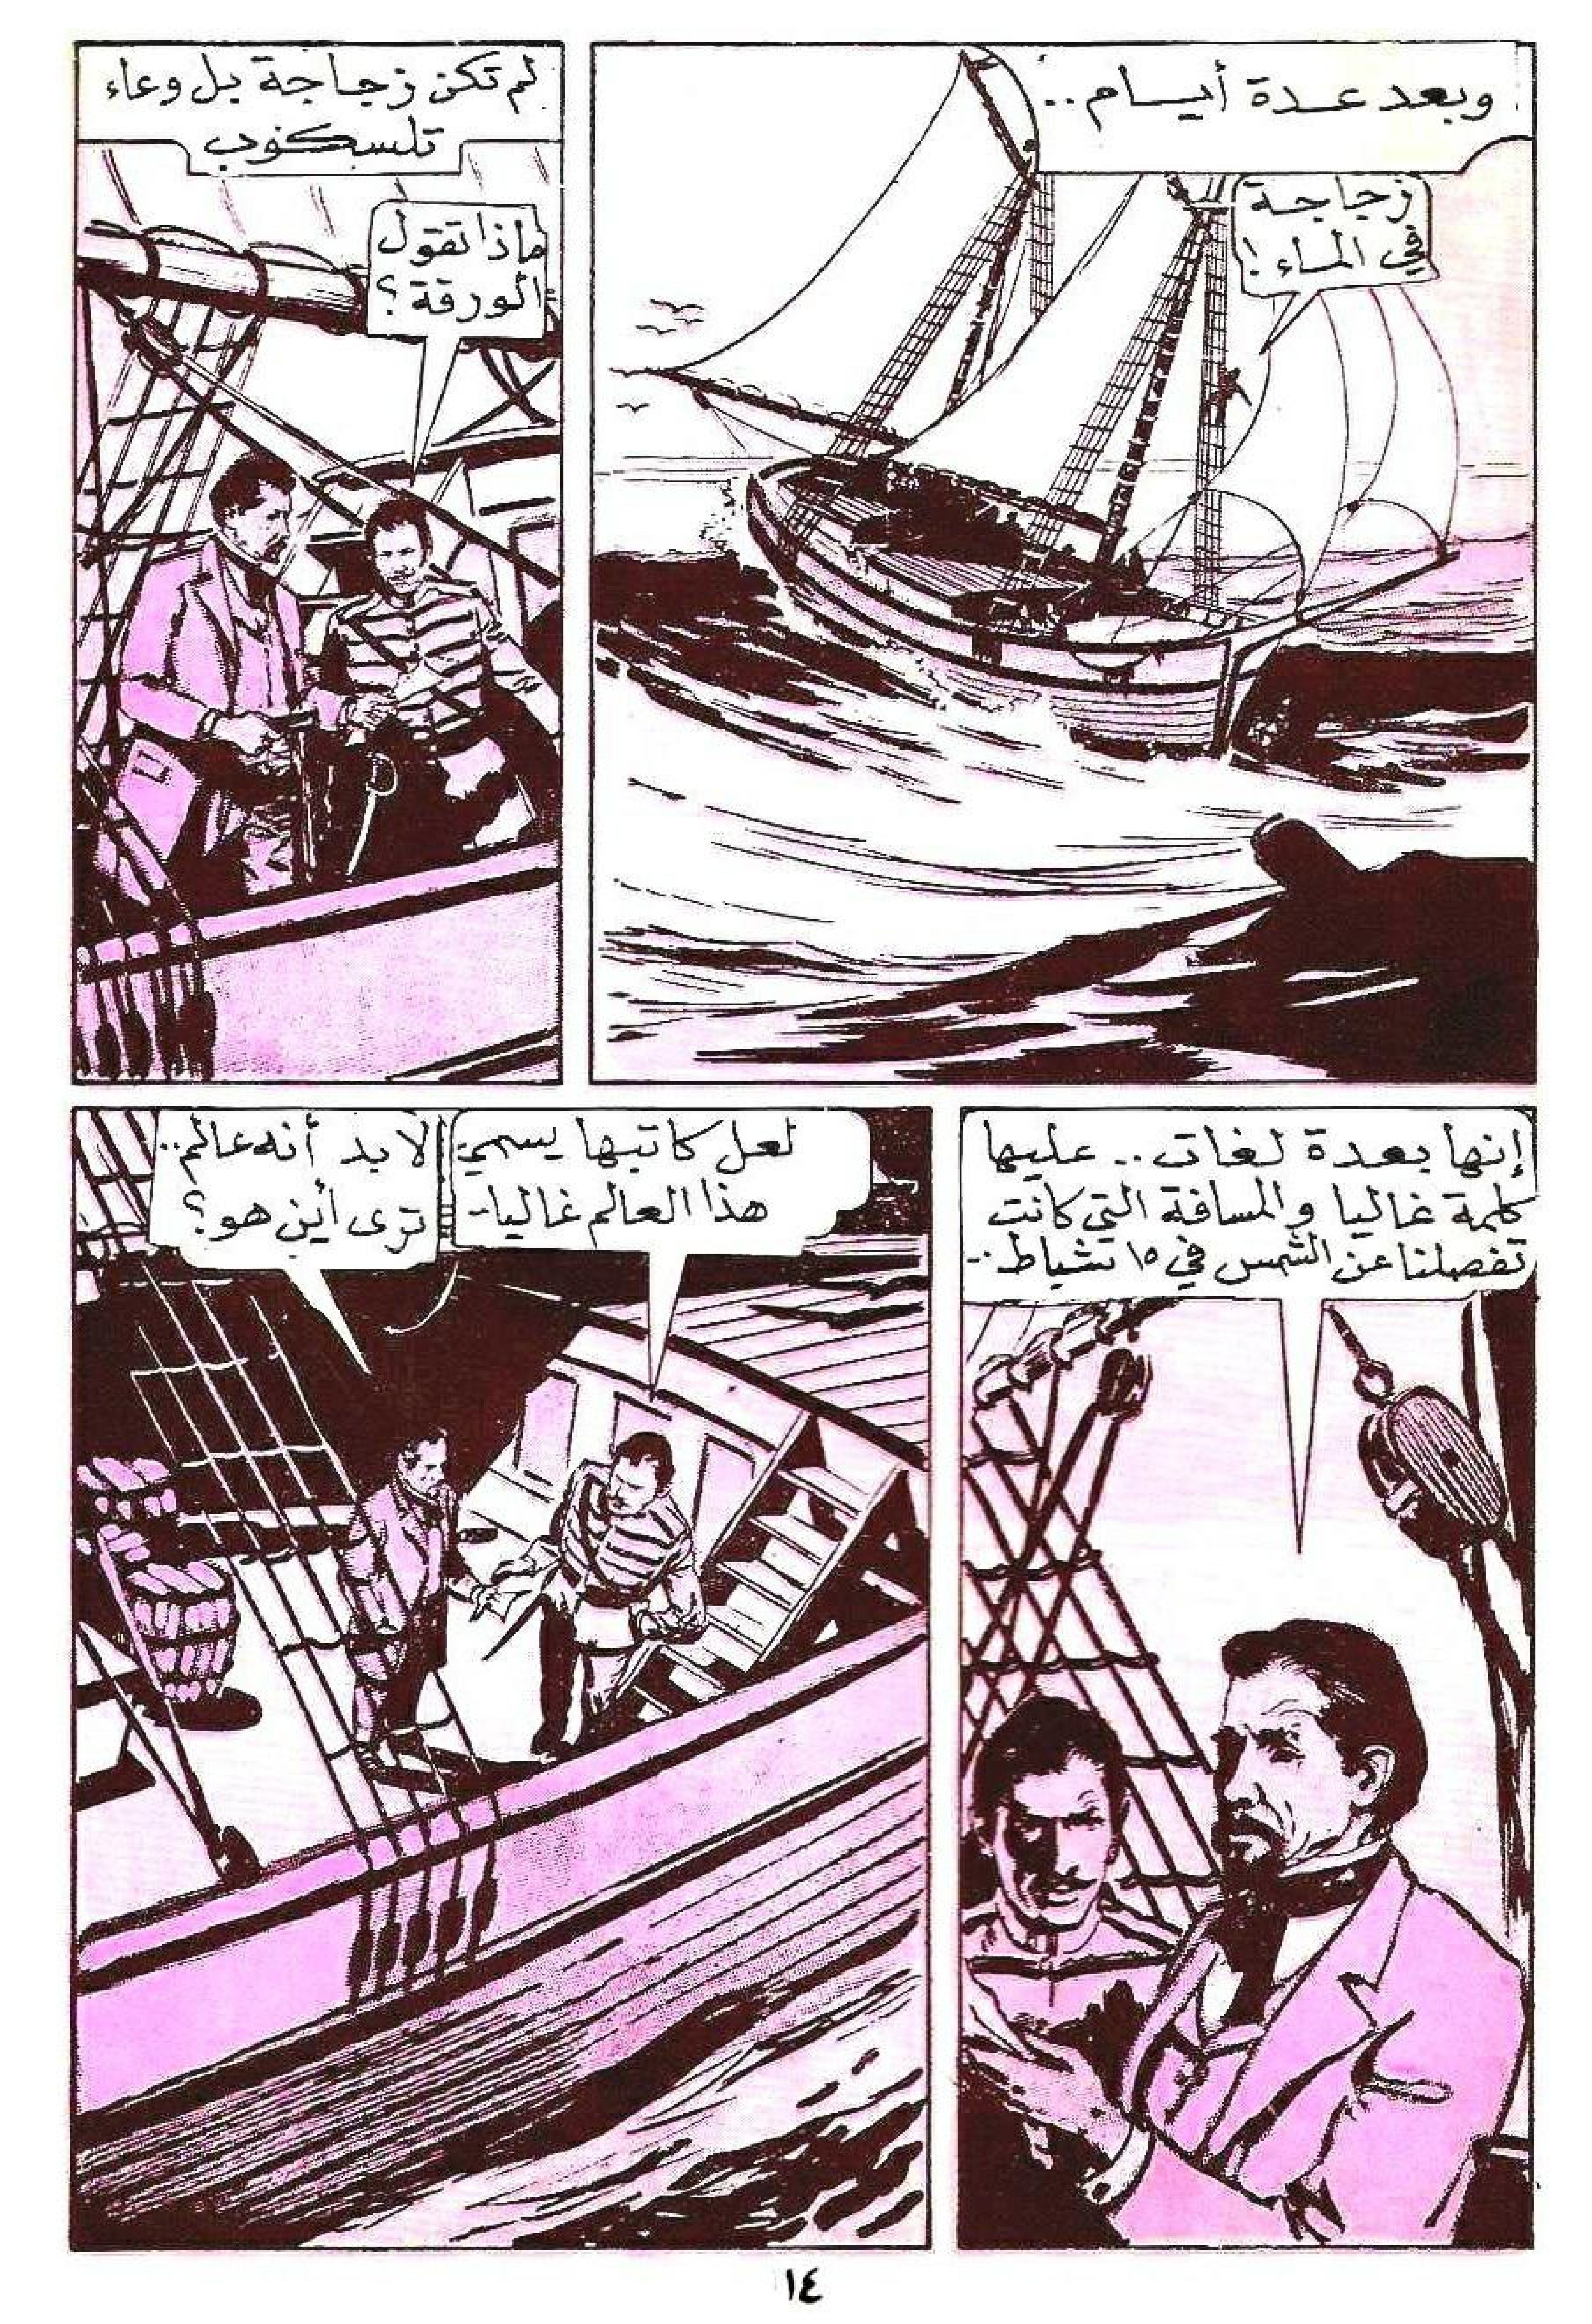 وبعد عدة أيام..
زجاجة
في الماء!
لم تكن زجاجة بل وعاء
تلسكوب
ماذا تقول
الورقة؟
إنها بعدة لغات.. عليها
كلمة غاليا والمسافة التي كانت
تفصلنا عن الشمس في ١٥ شباط..
لعل كاتبها يسمي
هذا العالم غاليا..
لابد أنه عالم..
ترى أين هو؟
١٤